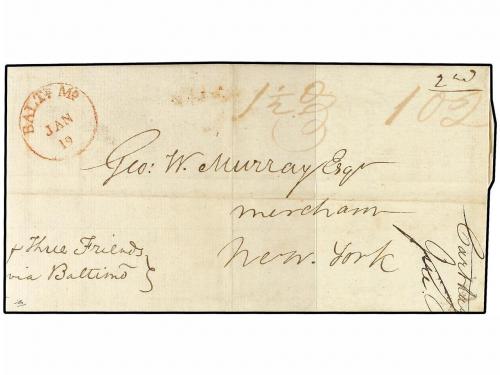 2nd
BALTE MD
JAN
19
1½ oz
102
Geo: W. Murray Esqr
merchant
New York
Three Friends
via Baltimo